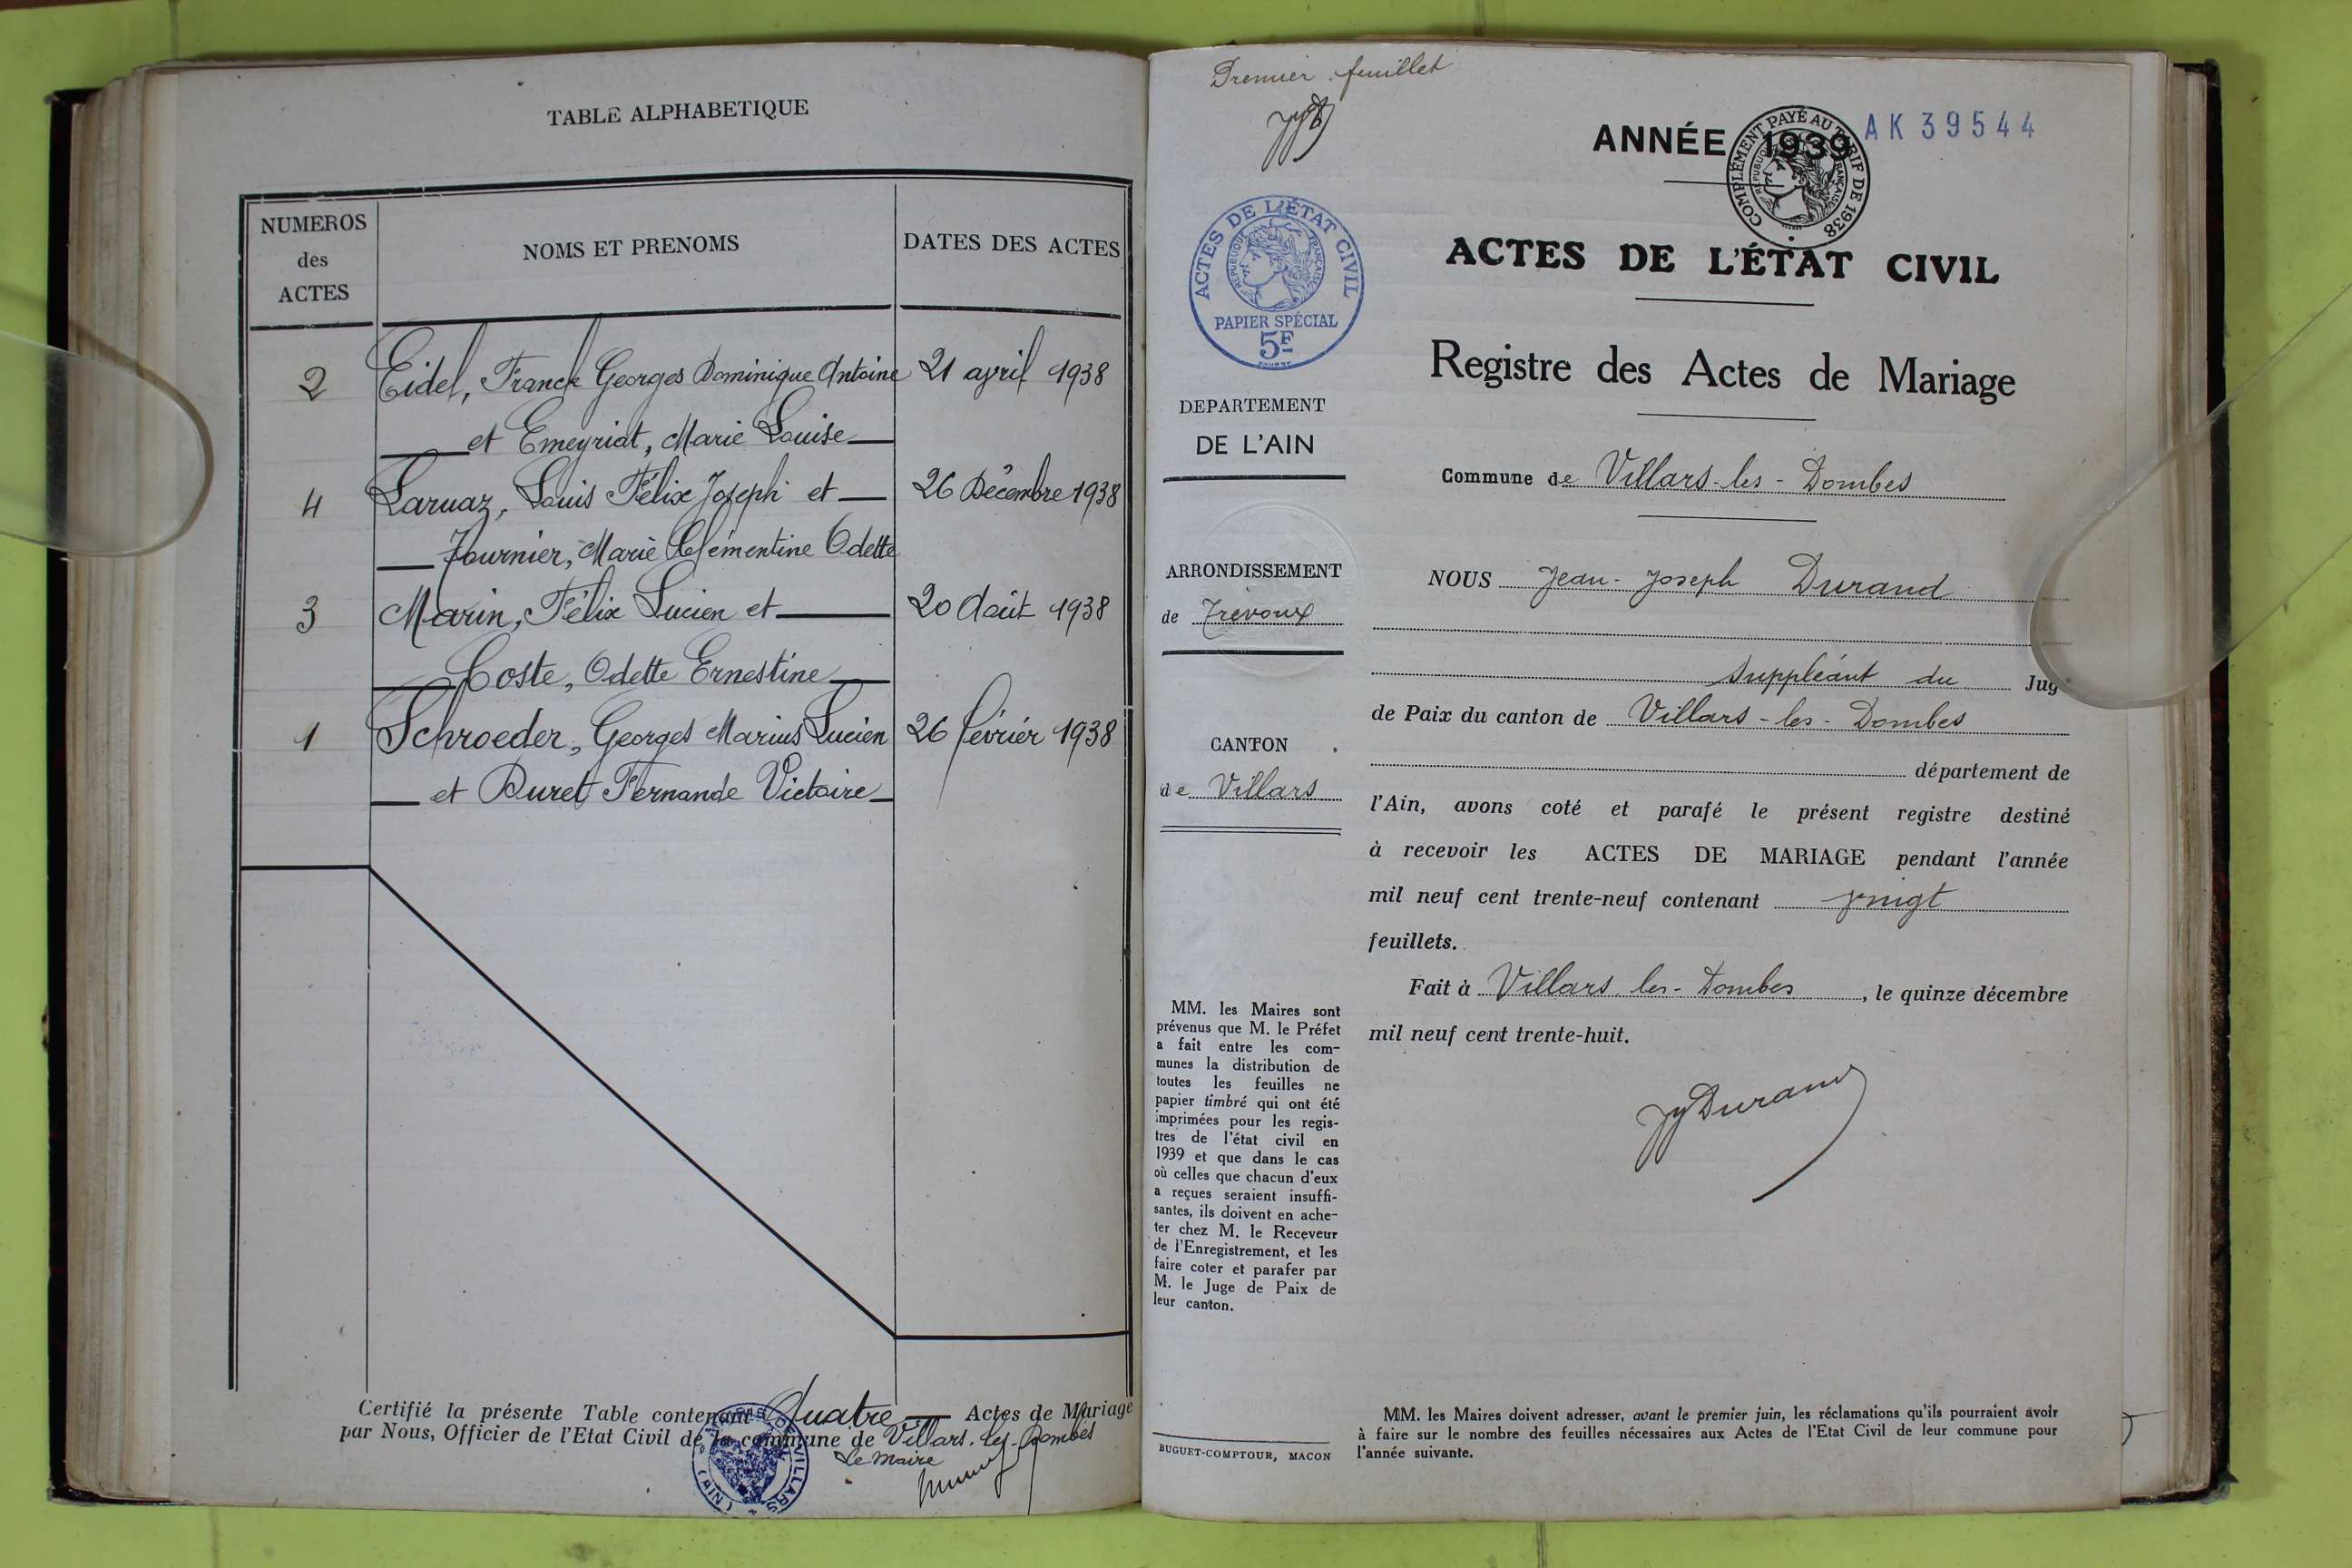 TABLE ALPHABETIQUE
NUMEROS
des
ACTES
NOMS ET PRENOMS
DATES DES ACTES
2 Eidel, Franck Georges Dominique Antoine 21 avril 1938
et Emeyriat, Marie Louise
4 Laruaz, Louis Félix Joseph et 26 Décembre 1938
Fournier, Marie Clémentine Odette
3 Marin, Félix Lucien et 20 Août 1938
Coste, Odette Ernestine
1 Schroeder, Georges Marius Lucien 26 février 1938
et Duret Fernande Victoire
Certifié la présente Table contenant Quatre Actes de Mariage
par Nous, Officier de l'Etat Civil de la commune de Villars-les-Dombes
Le Maire
Premier feuillet
ANNÉE 1939
AK 39544
COMPLÉMENT PAYÉ AU TARIF DE 1938
RÉPUBLIQUE FRANÇAISE
ACTES DE L'ÉTAT CIVIL
RÉPUBLIQUE FRANÇAISE
PAPIER SPÉCIAL
5F
DEPARTEMENT
DE L'AIN
ARRONDISSEMENT
de Trévoux
CANTON
de Villars
MM. les Maires sont
prévenus que M. le Préfet
a fait entre les com-
munes la distribution de
toutes les feuilles ne
papier timbré qui ont été
imprimées pour les regis-
tres de l'état civil en
1939 et que dans le cas
où celles que chacun d'eux
a reçues seraient insuffi-
santes, ils doivent en ache-
ter chez M. le Receveur
de l'Enregistrement, et les
faire coter et parafer par
M. le Juge de Paix de
leur canton.
BUGUET-COMPTOUR, MACON
ACTES DE L'ÉTAT CIVIL
Registre des Actes de Mariage
Commune de Villars-les-Dombes
NOUS Jean-Joseph Durand
suppléant du Jug
de Paix du canton de Villars-les-Dombes
département de
l'Ain, avons coté et parafé le présent registre destiné
à recevoir les ACTES DE MARIAGE pendant l'année
mil neuf cent trente-neuf contenant vingt
feuillets.
Fait à Villars-les-Dombes, le quinze décembre
mil neuf cent trente-huit.
JJDurand
MM. les Maires doivent adresser, avant le premier juin, les réclamations qu'ils pourraient avoir
à faire sur le nombre des feuilles nécessaires aux Actes de l'Etat Civil de leur commune pour
l'année suivante.